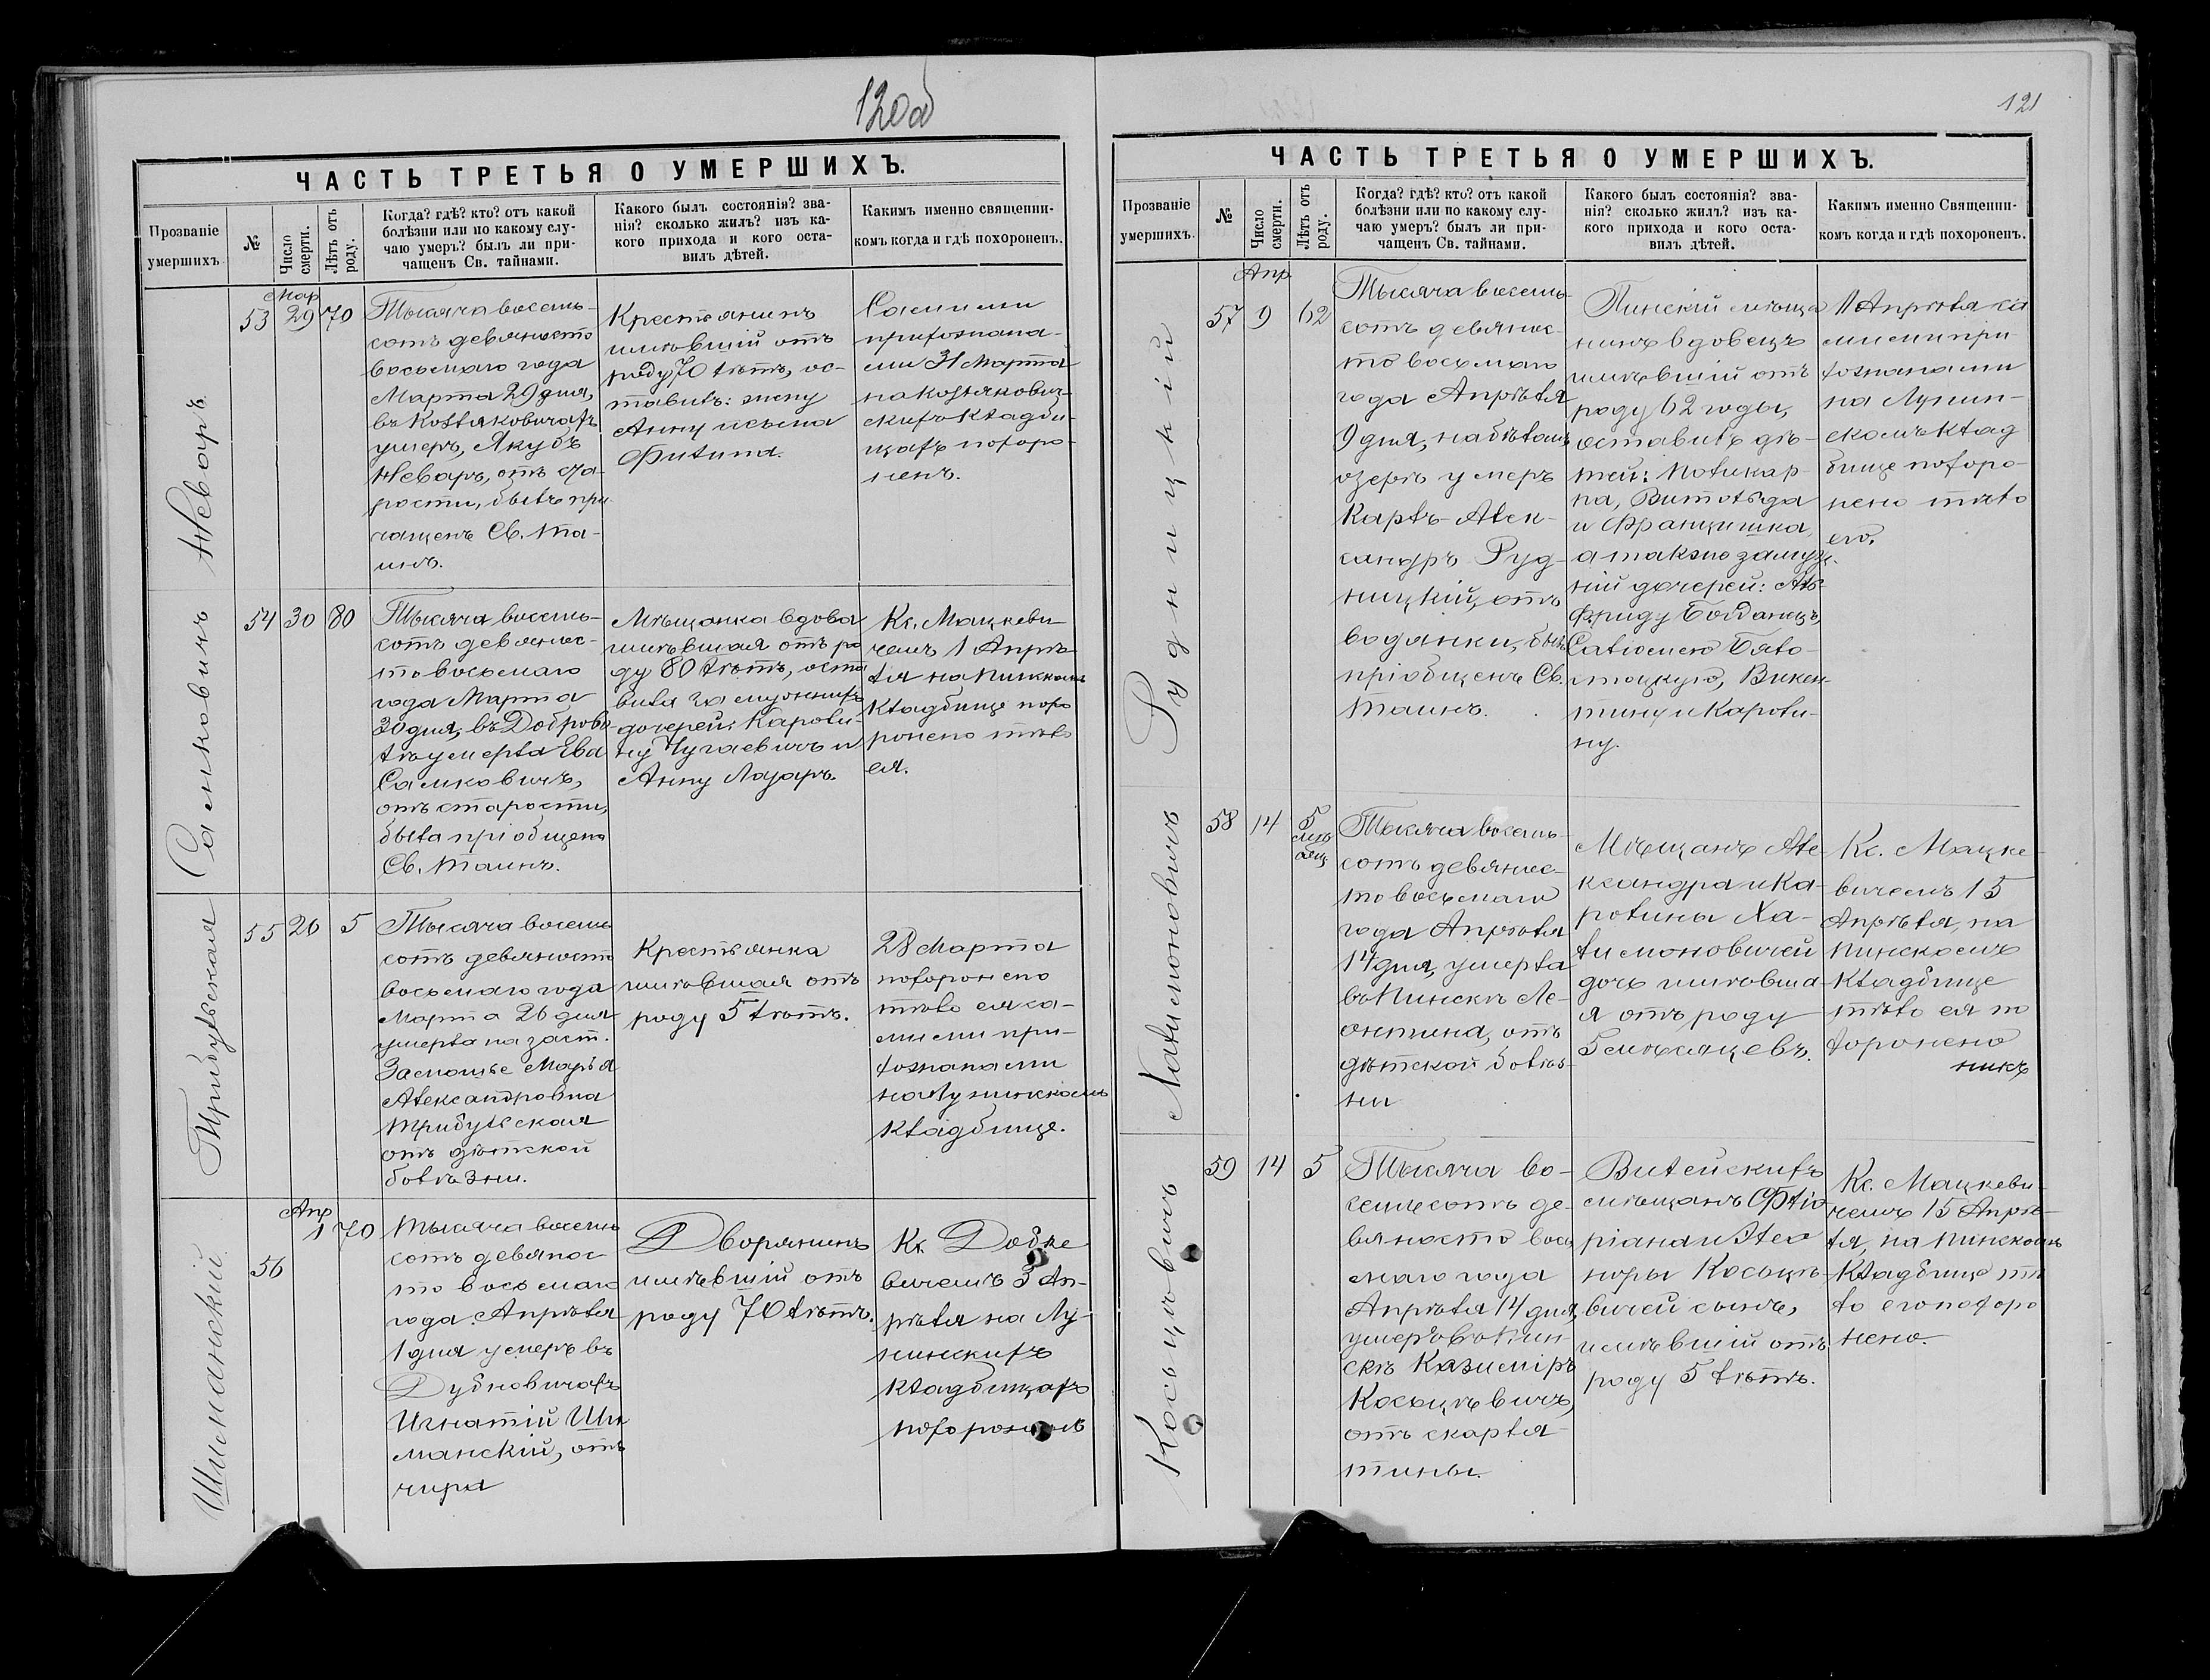 120об
ЧАСТЬ ТРЕТЬЯ О УМЕРШИХЪ.
Прозваніе
умершихъ
№
Число
смерти.
Лѣтъ отъ
роду.
Когда? гдѣ? кто? отъ какой
болѣзни или по какому слу-
чаю умеръ? былъ ли при-
чащенъ Св. тайнами.
Какого былъ состоянія? зва-
нія? сколько жилъ? изъ ка-
кого прихода и кого оста-
вилъ дѣтей.
Какимъ именно священни-
комъ когда и гдѣ похороненъ.
Неваръ
53
Мар
29
70
Тысяча восемь-
сотъ девяносто
восьмаго года
Марта 29 дня,
въ Козляковичахъ
умеръ, Якубъ
Неваръ, отъ ста-
рости, былъ при
чащенъ Св. та-
инъ.
Крестьянинъ
имѣвшій отъ
роду 70 лѣтъ, ос-
тавилъ: жену
Анну и сына
Филипа.
Самими
прихожана-
ми 31 Марта
на Козляковичс-
кихъ кладби-
щахъ похоро-
ненъ.
Самковичъ
54
30
80
Тысяча восемь-
сотъ девянос-
то восьмаго
года Марта
30 дня, въ Доброво
лѣ умерла Ева
Самковичъ,
отъ старости,
была пріобщена
Св. Таинъ.
Мѣщанка вдова
имѣвшая отъ ро
ду 80 лѣтъ, оста
вила замужнихъ
дочерей: Кароли-
ну Чугаевичъ и
Анну Лазаръ.
Кс. Мацкеви
чемъ 1 Апрѣ-
ля на Пинскомъ
кладбище похо
ронено тѣло
ея.
Трибульская
55
26
5
Тысяча восемь
сотъ девяносто
восьмаго года
Марта 26 дня
умерла на заст.
Замошье Марья
Александровна
Трибульская
отъ дѣтской
болѣзни.
Крестьянка
имѣвшая отъ
роду 5 лѣтъ.
28 Марта
похоронено
тѣло ея са-
мыми при-
хожанами
на Лунинскомъ
кладбище.
Шиманскій
56
Апр
1
70
Тысяча восемь
сотъ девянос
то восьмаго
года Апрѣля
1 дня умеръ въ
Дубновичахъ
Игнатій Ши
манскій, отъ
чира
Дворянинъ
имѣвшій отъ
роду 70 лѣтъ.
Кс. Добке
вичемъ 3 Ап-
рѣля на Лу-
нинскихъ
кладбищахъ
похороненъ
121
ЧАСТЬ ТРЕТЬЯ О УМЕРШИХЪ.
Прозваніе
умершихъ.
№
Число
смерти.
Лѣтъ отъ
роду.
Когда? гдѣ? кто? отъ какой
болѣзни или по какому слу-
чаю умеръ? былъ ли при-
чащенъ Св. тайнами.
Какого былъ состоянія? зва-
нія? сколько жилъ? изъ ка-
кого прихода и кого оста-
вилъ дѣтей.
Какимъ именно Священни-
комъ когда и гдѣ похороненъ.
Рудницкій
57
Апр
9
62
Тысяча восемь-
сотъ девянос-
то восьмаго
года Апрѣля
9 дня, на бѣломъ
озерѣ умеръ
Карлъ-Алек-
сандръ Руд-
ницкій, отъ
водянки, былъ
пріобщенъ Св.
Таинъ.
Пинскій мѣща
нинъ вдовецъ
имѣвшій отъ
роду 62 годы,
оставилъ дѣ-
тей: Поликар-
па, Витольда
и Францишка,
а также замуж.
ній дочерей: Аль-
фриду Богданецъ,
Саломею Бяло-
тоцкую, Викен
тину и Кароли-
ну.
11 Апрѣля са
мими при
хожанами
на Лунин-
скомъ клад
бище похоро-
нено тѣло
его.
Халимоновичъ
58
14
5
мѣс
яц
Тысяча восемь-
сотъ девянос-
то восьмаго
года Апрѣля
14 дня, умерла
въ Пинскѣ Ле-
онтина, отъ
дѣтской болѣз-
ни
Мѣщанъ Але-
ксандра и Ка-
ролины Ха-
лимоновичей
дочь имѣвша-
я отъ роду
5 мѣсяцевъ.
Кс. Мацке-
вичемъ 15
Апрѣля, на
Пинскомъ
кладбище
тѣло ея по
хоронено
Косцѣвичъ
59
14
5
Тысяча во-
семьсотъ де-
вяносто вось
маго года
Апрѣля 14 дня,
умеръ въ Пин-
скѣ Казиміръ
Косьцѣвичъ,
отъ скарла-
тины.
Вилейскихъ
мѣщанъ Фло
ріана и Элео
норы Косьцѣ-
вичей сынъ,
имѣвшій отъ
роду 5 лѣтъ.
Кс. Мацкеви-
чемъ 15 Апрѣ-
ля, на Пинскомъ
кладбище тѣ
ло его похоро
нено.